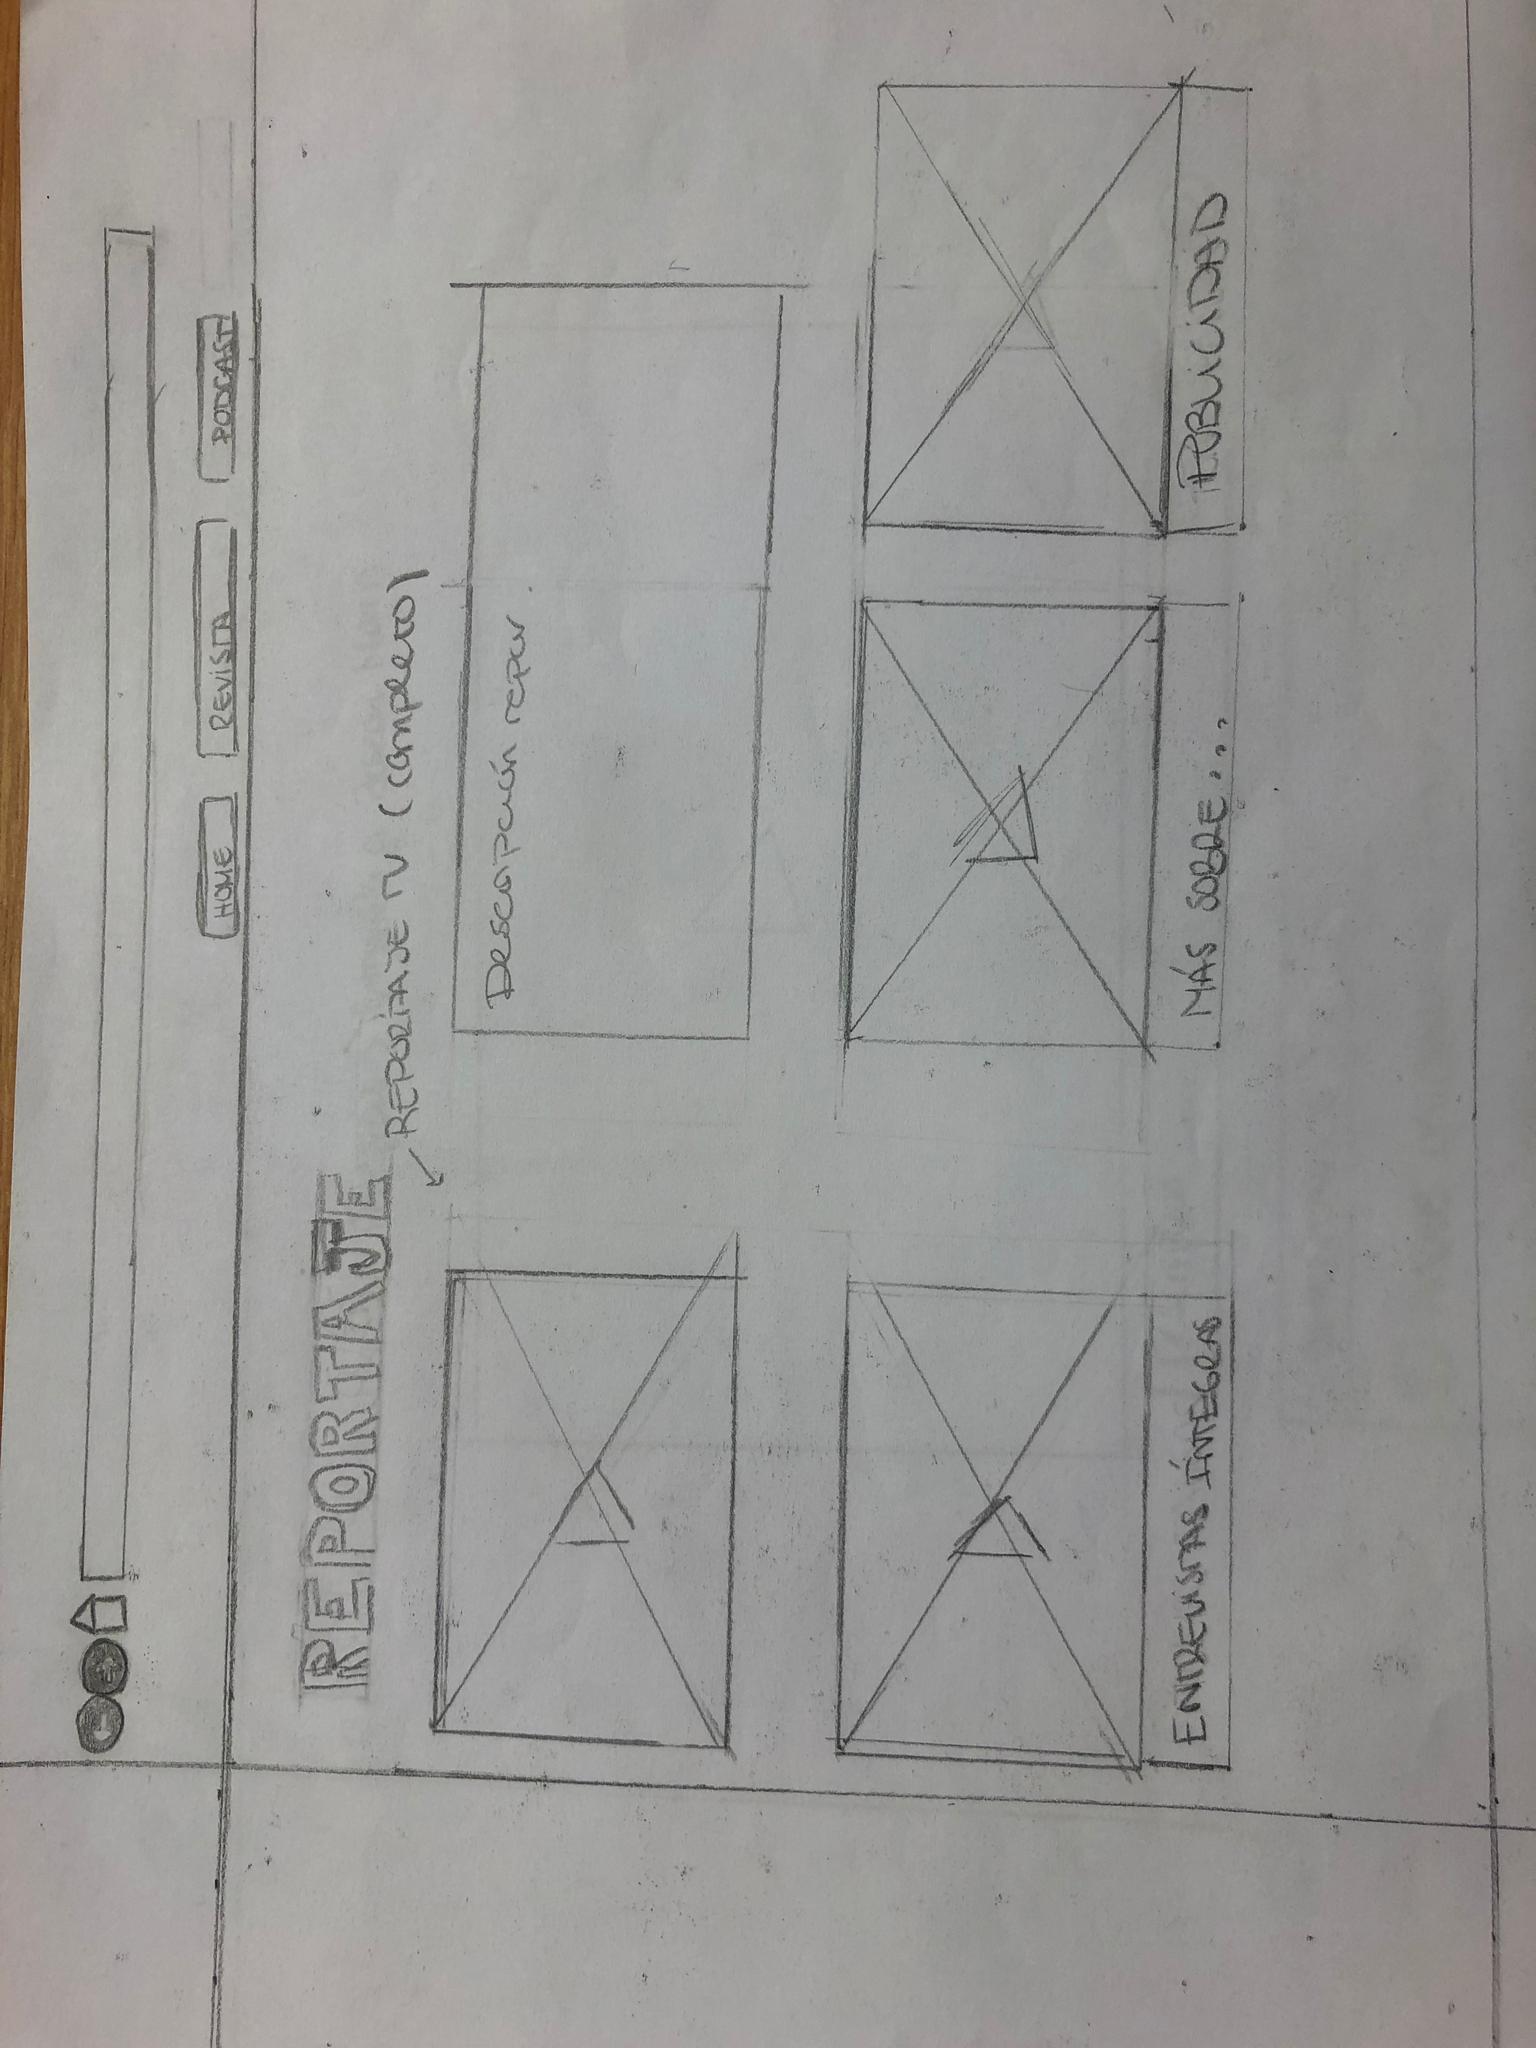 HOME REVISTA PODCAST
REPORTAJE
REPORTAJE TV (completo)
Descripción repor.
ENTREVISTAS ÍNTEGRAS
MÁS SOBRE...
PUBLICIDAD